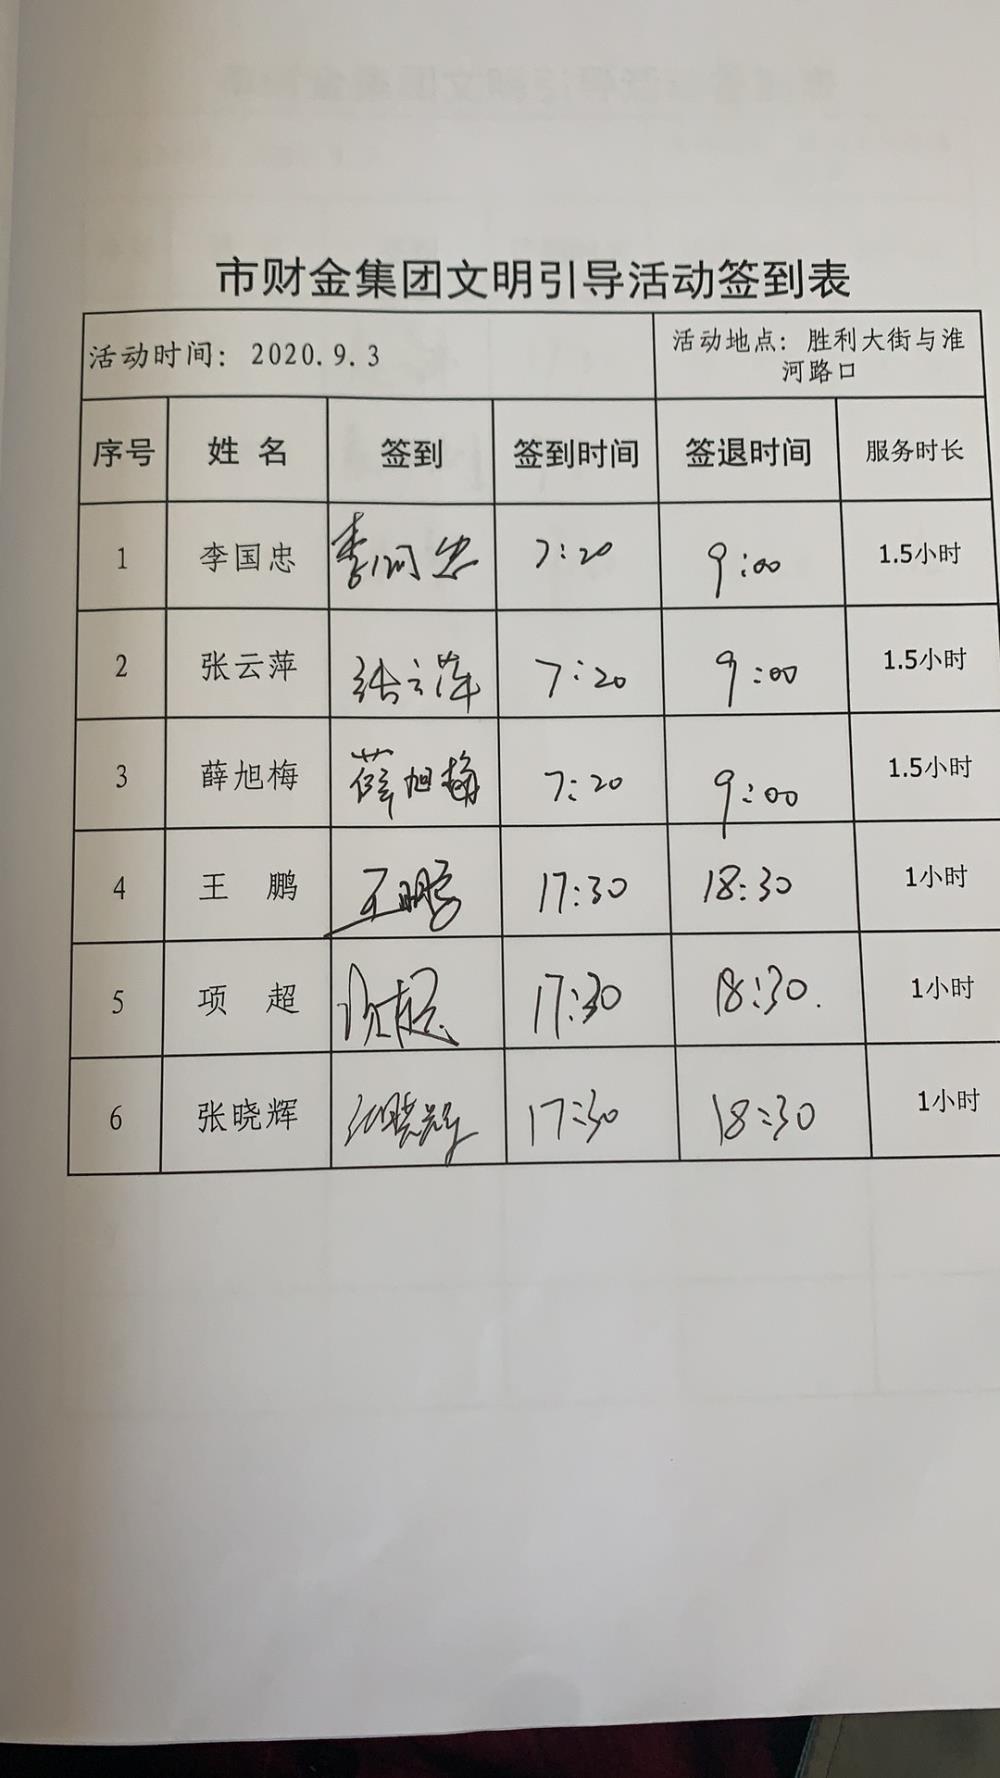 市财金集团文明引导活动签到表
活动时间：2020.9.3
活动地点：胜利大街与淮
河路口
序号 姓 名 签到 签到时间 签退时间 服务时长
1 李国忠 李国忠 7:20 9:00 1.5小时
2 张云萍 张云萍 7:20 9:00 1.5小时
3 薛旭梅 薛旭梅 7:20 9:00 1.5小时
4 王 鹏 王鹏 17:30 18:30 1小时
5 项 超 项超 17:30 18:30. 1小时
6 张晓辉 张晓辉 17:30 18:30 1小时